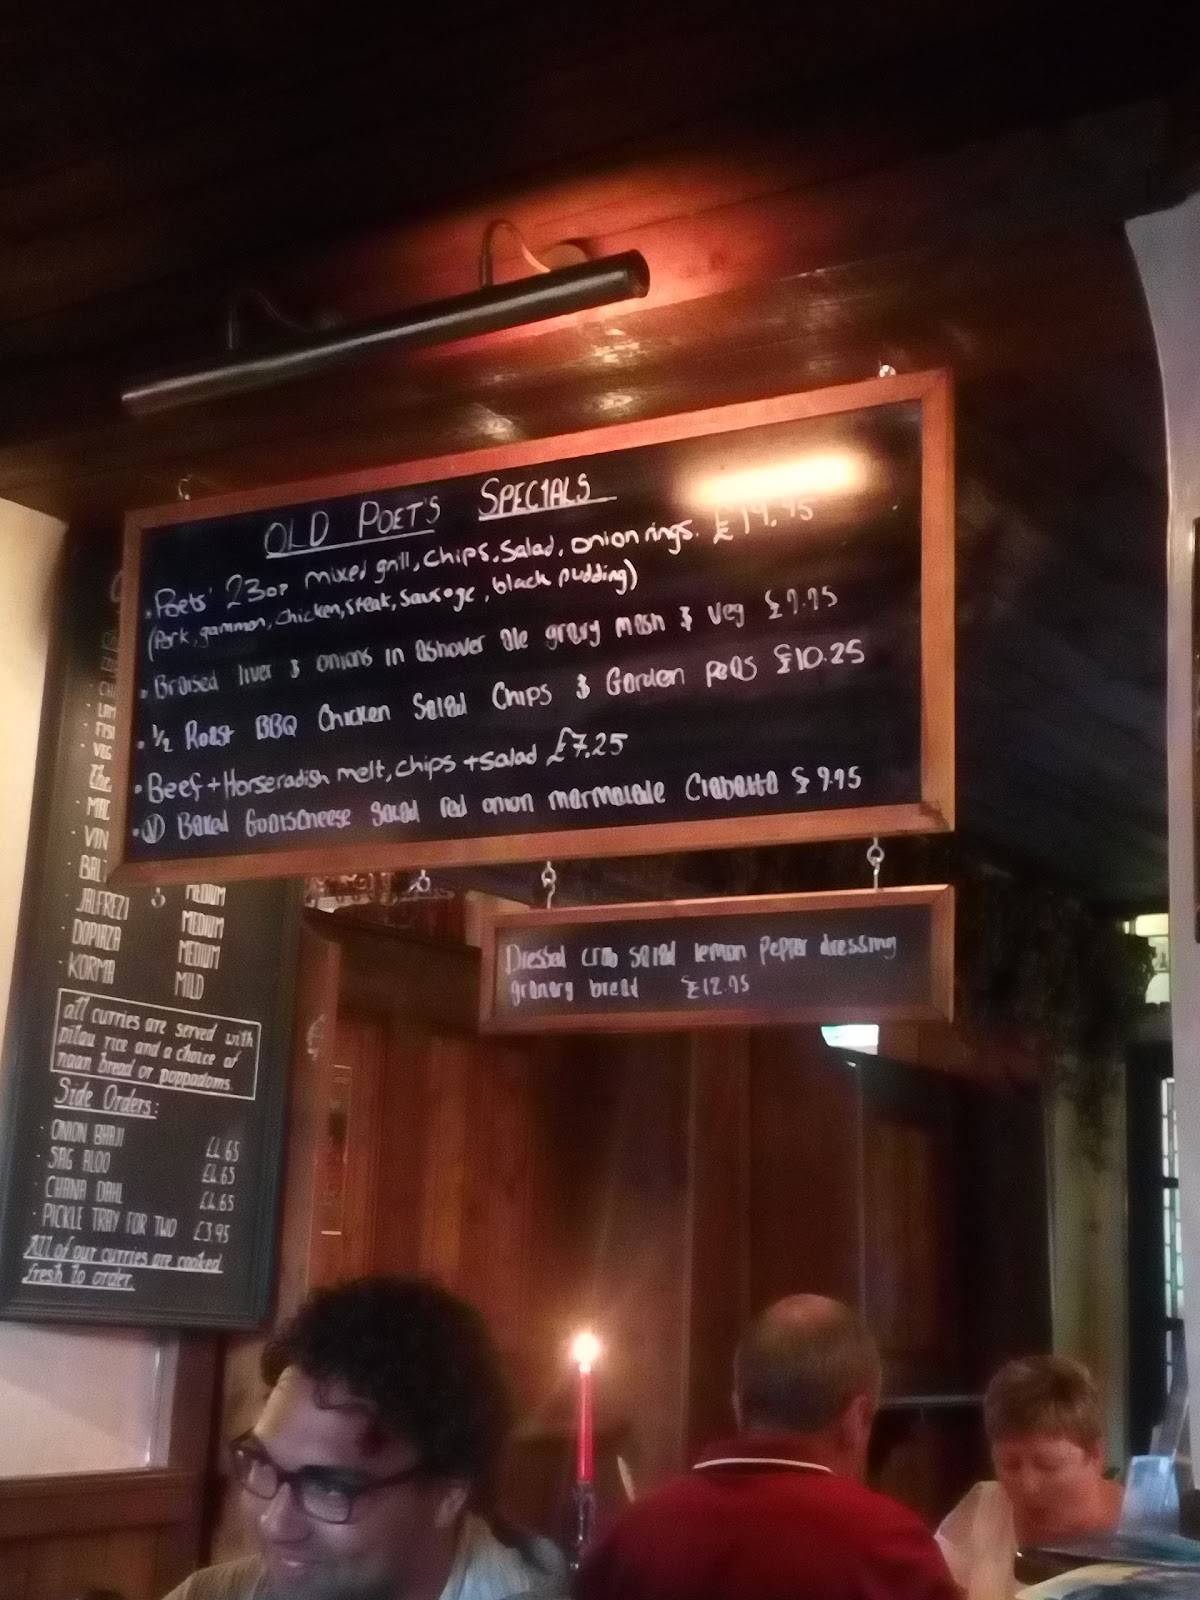 OLD POET'S SPECIALS
• Poets' 23oz mixed grill, chips, salad, onion rings.
(Pork, gammon, chicken, steak, sausage, black pudding)
• Braised liver & onions in ashover ale gravy mash & veg £9.95
• 1/2 Roast BBQ Chicken Salad Chips & Garden peas £10.25
• Beef + Horseradish melt, chips + salad £7.25
• (V) Baked Goatscheese salad red onion marmalade Ciabatta £9.95
Dressed crab salad lemon pepper dressing
granary bread £12.95
VIN
• JALFREZI MEDIUM
• DOPIAZA MEDIUM
• KORMA MILD
all curries are served with
pilau rice and a choice of
naan bread or poppadoms.
Side Orders:
• ONION BHAJI £4.65
• SAG ALOO £4.65
• CHANA DAHL £4.65
• PICKLE TRAY FOR TWO £3.95
All of our curries are cooked
fresh to order.